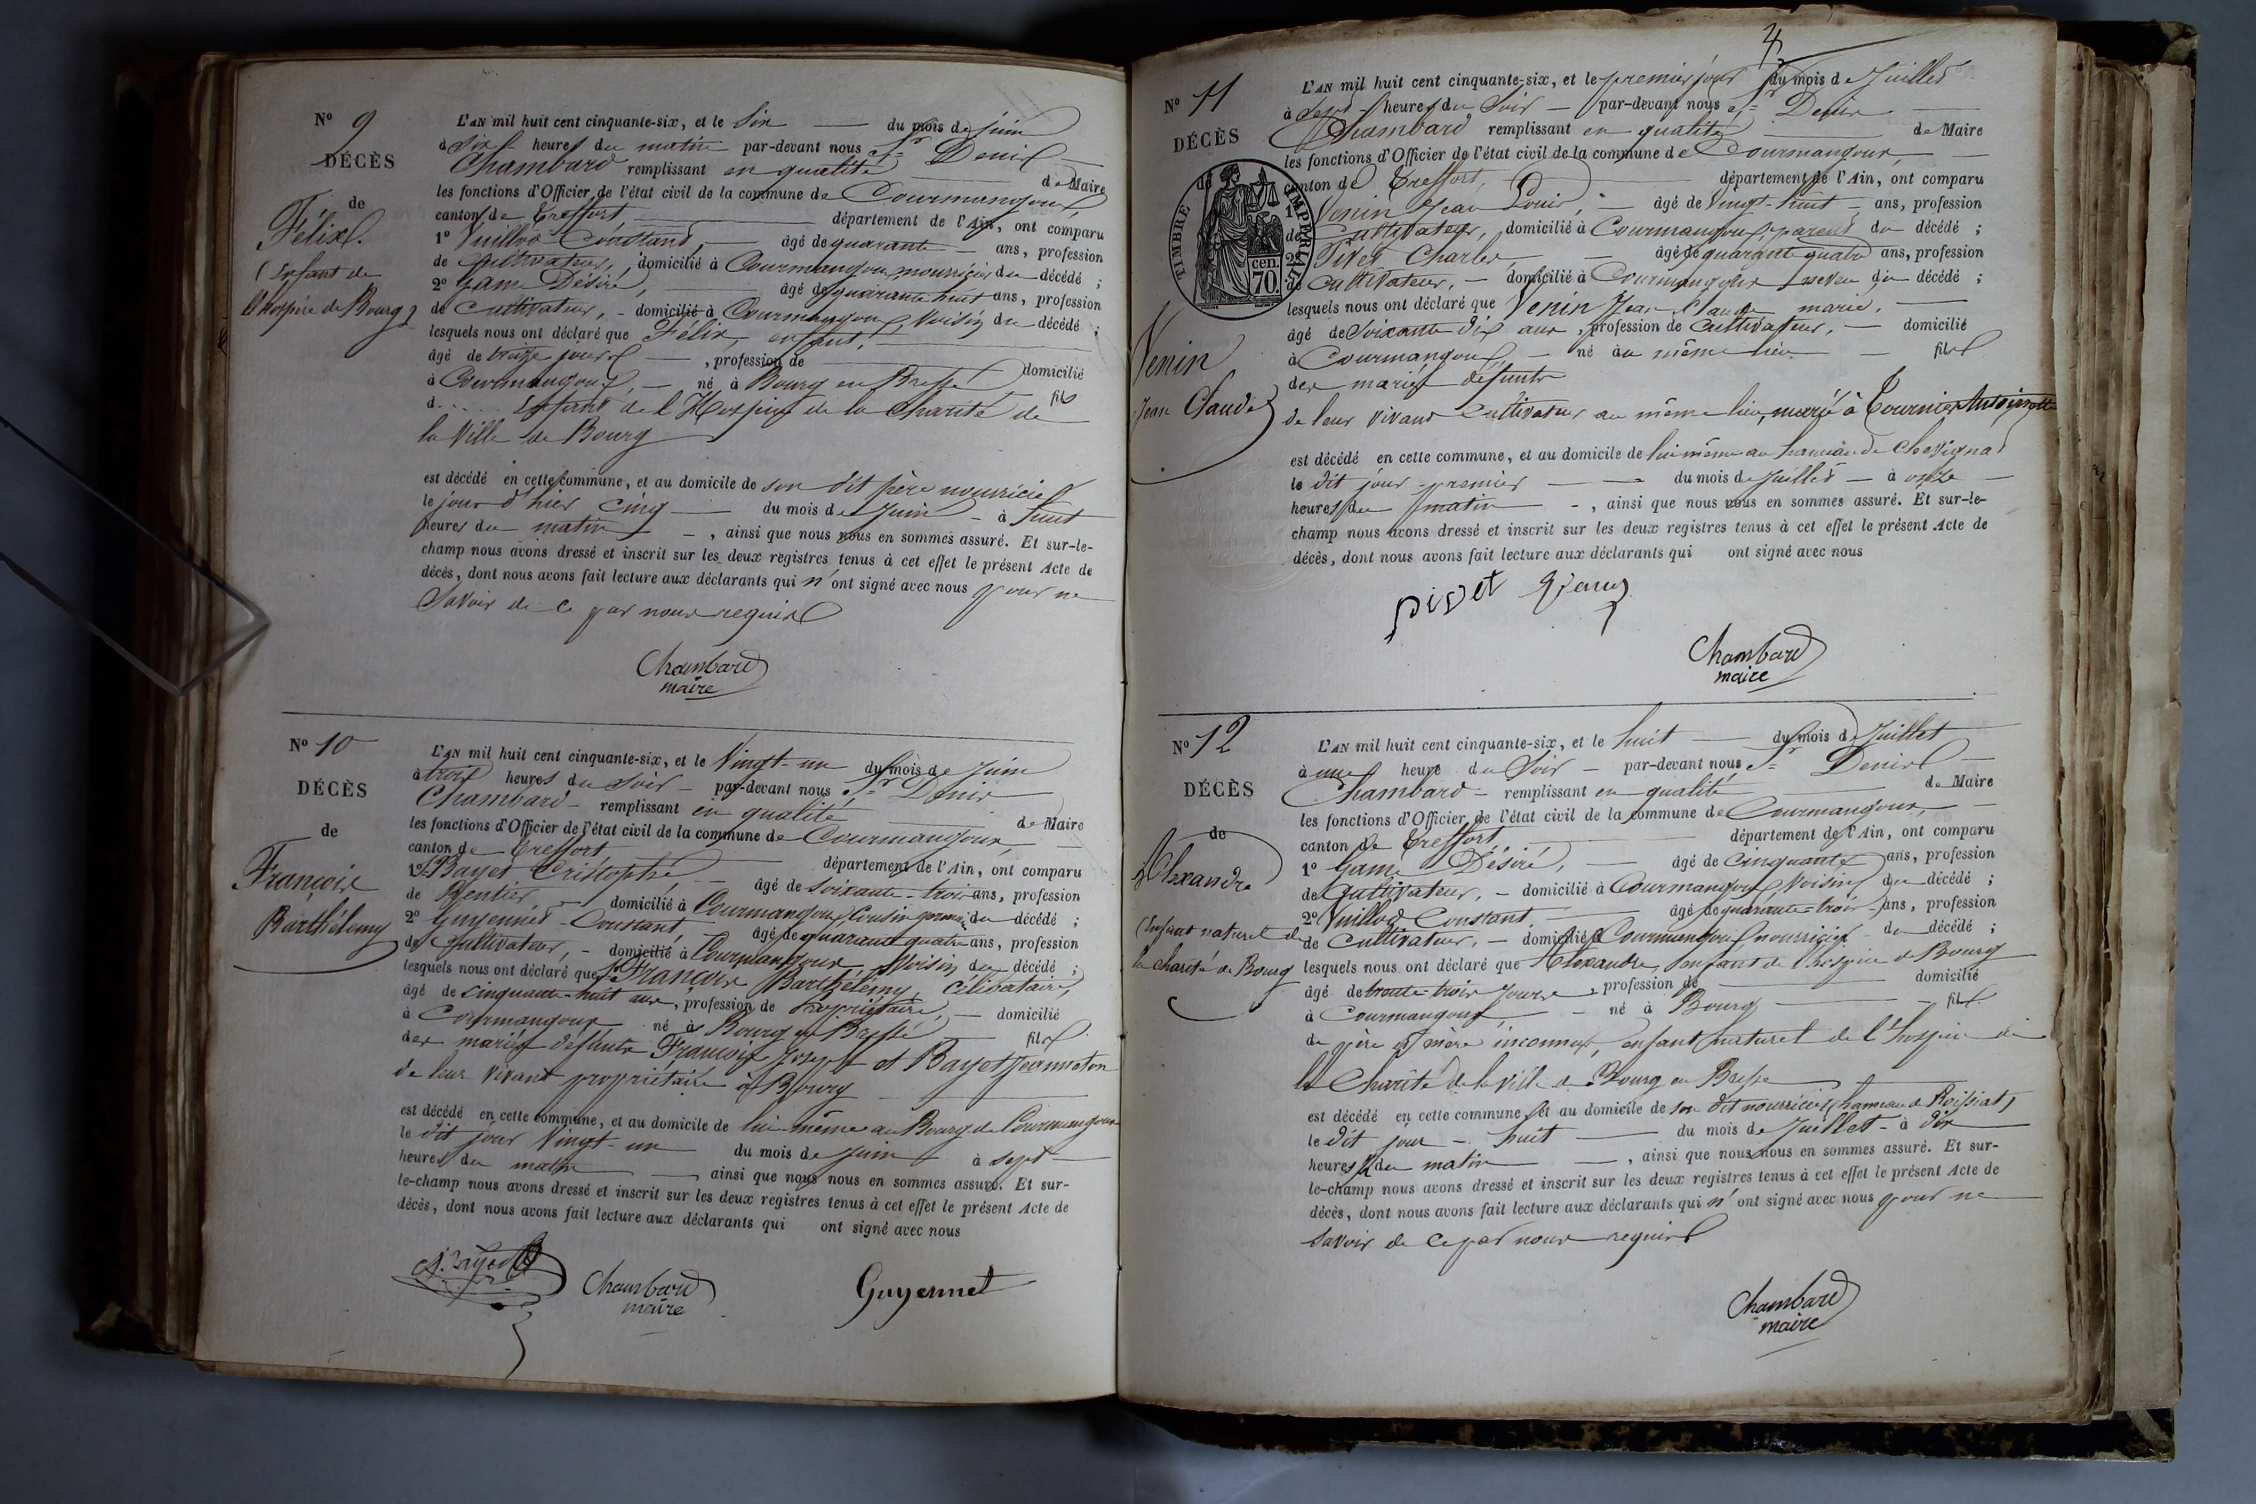 N° 9
DÉCÈS
de
Félix
(Enfant de
l'hospice de Bourg)
L'AN mil huit cent cinquante-six, et le Six du mois de juin
à Six heures du matin par-devant nous Sr Denis
Chambard remplissant en qualité de Maire
les fonctions d'Officier de l'état civil de la commune de Courmangoux,
canton de Treffort département de l'Ain, ont comparu
1° Vuillod Constant, âgé de quarante ans, profession
de Cultivateur, domicilié à Courmangoux nourricier du décédé ;
2° Game Désiré, âgé de quarante huit ans, profession
de Cultivateur, domicilié à Courmangoux, Voisin du décédé ;
lesquels nous ont déclaré que Félix, enfant,
âgé de treize jours, profession de domicilié
à Courmangoux, né à Bourg en Bresse fils
d..... Enfant de l'Hospice de la Charité de
la Ville de Bourg
est décédé en cette commune, et au domicile de son dit père nourricier
le jour d'hier cinq du mois de Juin à huit
heures du matin, ainsi que nous nous en sommes assuré. Et sur-le-
champ nous avons dressé et inscrit sur les deux registres tenus à cet effet le présent Acte de
décès, dont nous avons fait lecture aux déclarants qui n'ont signé avec nous pour ne
Savoir de ce par nous requis
Chambard
maire
N° 10
DÉCÈS
de
François
Barthélemy
L'AN mil huit cent cinquante-six, et le Vingt-un du mois de Juin
à trois heures du Soir par-devant nous Sr Denis
Chambard remplissant en qualité de Maire
les fonctions d'Officier de l'état civil de la commune de Courmangoux,
canton de Treffort département de l'Ain, ont comparu
1° Bayet Cristophe, âgé de soixante-trois ans, profession
de Rentier domicilié à Courmangoux, Cousin germain du décédé ;
2° Guyennet Constant, âgé de quarante quatre ans, profession
de Cultivateur, domicilié à Courmangoux Voisin du décédé ;
lesquels nous ont déclaré que Sr François Barthélemy, Célibataire,
âgé de cinquante-huit ans, profession de Propriétaire, domicilié
à Courmangoux né à Bourg en Bresse fils
des mariés défunts François Joseph et Bayet Jeanneton
de leur vivant propriétaire à Bourg
est décédé en cette commune, et au domicile de lui-même au Bourg de Courmangoux
le dit jour Vingt-un du mois de Juin à sept
heures du matin ainsi que nous nous en sommes assuré. Et sur-
le-champ nous avons dressé et inscrit sur les deux registres tenus à cet effet le présent Acte de
décès, dont nous avons fait lecture aux déclarants qui ont signé avec nous
Chambard
maire
Guyennet
N° 11
DÉCÈS
de
TIMBRE IMPERIAL
70 cen.
Venin
Jean Claude
L'AN mil huit cent cinquante-six, et le premier jour du mois de Juillet
à Sept heures du Soir par-devant nous Sr Denis
Chambard remplissant en qualité de Maire
les fonctions d'Officier de l'état civil de la commune de Courmangoux,
canton de Treffort, département de l'Ain, ont comparu
1° Venin Jean Louis, âgé de Vingt-huit ans, profession
de Cultivateur, domicilié à Courmangoux, parent du décédé ;
2° Pivet Charles, âgé de quarante quatre ans, profession
de Cultivateur, domicilié à Courmangoux neveu du décédé ;
lesquels nous ont déclaré que Venin Jean Claude marié,
âgé de Soixante dix ans, profession de Cultivateur, domicilié
à Courmangoux, né au même lieu fils
des mariés défunts
de leur vivant Cultivateur au même lieu, marié à Tournier Antoinette
est décédé en cette commune, et au domicile de lui même au hameau de Chevignat
le dit jour premier du mois de Juillet à onze
heures du matin, ainsi que nous nous en sommes assuré. Et sur-le-
champ nous avons dressé et inscrit sur les deux registres tenus à cet effet le présent Acte de
décès, dont nous avons fait lecture aux déclarants qui ont signé avec nous
pivet
Chambard
maire
N° 12
DÉCÈS
de
Alexandre
(Enfant naturel de
la charité de Bourg
L'AN mil huit cent cinquante-six, et le huit du mois de Juillet
à une heure du Soir par-devant nous Sr Denis
Chambard remplissant en qualité de Maire
les fonctions d'Officier de l'état civil de la commune de Courmangoux,
canton de Treffort, département de l'Ain, ont comparu
1° Game Désiré, âgé de Cinquante ans, profession
de Cultivateur, domicilié à Courmangoux Voisin du décédé ;
2° Vuillod Constant, âgé de quarante-trois ans, profession
de Cultivateur, domicilié à Courmangoux nourricier du décédé ;
lesquels nous ont déclaré que Alexandre, enfant de l'hospice de Bourg
âgé de trente-trois jours profession de domicilié
à Courmangoux, né à Bourg fils
de père et mère inconnus, enfant naturel de l'hospice de
la Charité de la ville de Bourg en Bresse
est décédé en cette commune, et au domicile de son dit nourricier (hameau de Roissiat)
le dit jour huit du mois de Juillet à dix
heures du matin, ainsi que nous nous en sommes assuré. Et sur-
le-champ nous avons dressé et inscrit sur les deux registres tenus à cet effet le présent Acte de
décès, dont nous avons fait lecture aux déclarants qui n'ont signé avec nous pour ne
Savoir de ce par nous requis
Chambard
maire